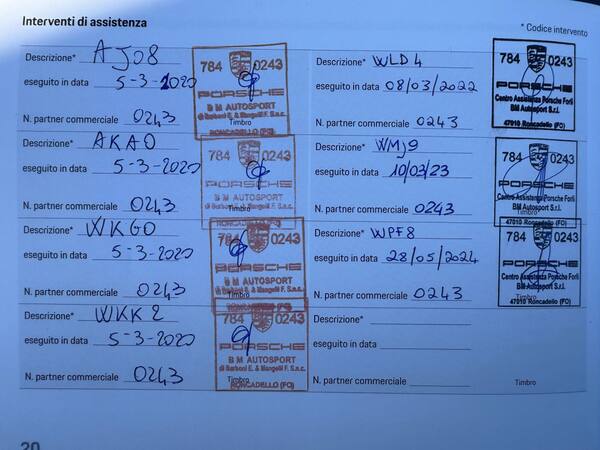 Interventi di assistenza
* Codice intervento
Descrizione* AJ08
eseguito in data 5-3-2020
N. partner commerciale 0243
Timbro
784 0243
PORSCHE
B M AUTOSPORT
di Barboni E. & Mangelli F. S.n.c.
RONCADELLO (FO)
Descrizione* AKA0
eseguito in data 5-3-2020
N. partner commerciale 0243
Timbro
784 0243
PORSCHE
B M AUTOSPORT
di Barboni E. & Mangelli F. S.n.c.
RONCADELLO (FO)
Descrizione* WKG0
eseguito in data 5-3-2020
N. partner commerciale 0243
Timbro
784 0243
PORSCHE
B M AUTOSPORT
di Barboni E. & Mangelli F. S.n.c.
RONCADELLO (FO)
Descrizione* WKK2
eseguito in data 5-3-2020
N. partner commerciale 0243
Timbro
784 0243
PORSCHE
B M AUTOSPORT
di Barboni E. & Mangelli F. S.n.c.
RONCADELLO (FO)
Descrizione* WLD4
eseguito in data 08/03/2022
N. partner commerciale 0243
784 0243
PORSCHE
Centro Assistenza Porsche Forlì
BM Autosport S.r.l.
47010 Roncadello (FO)
Descrizione* WMJ9
eseguito in data 10/03/23
N. partner commerciale 0243
Timbro
784 0243
PORSCHE
Centro Assistenza Porsche Forlì
BM Autosport S.r.l.
47010 Roncadello (FO)
Descrizione* WPF8
eseguito in data 28/05/2024
N. partner commerciale 0243
Timbro
784 0243
PORSCHE
Centro Assistenza Porsche Forlì
BM Autosport S.r.l.
47010 Roncadello (FO)
Descrizione*
eseguito in data
N. partner commerciale
Timbro
20